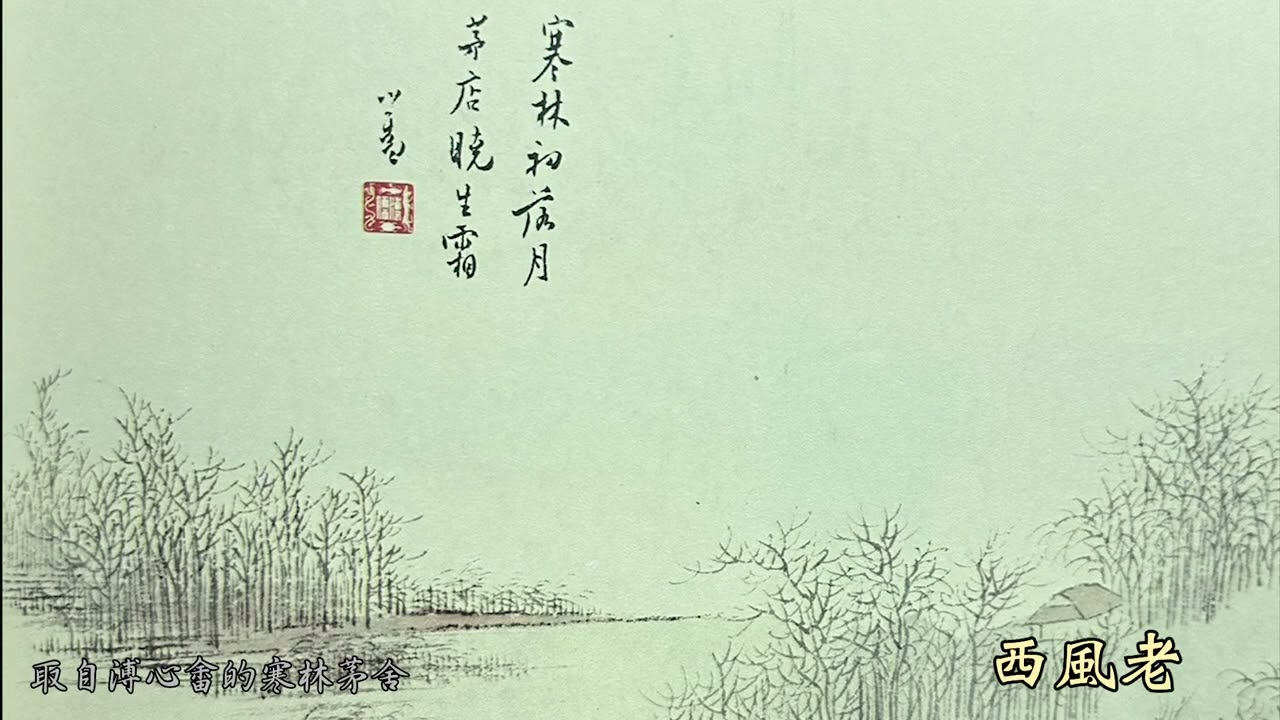 寒林初落月
茅店曉生霜
心畬
取自溥心畬的寒林茅舍
西風老